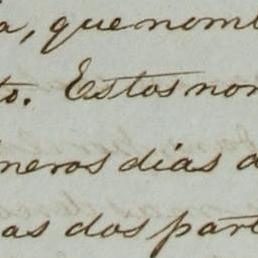 a, que nomb
to. Estos nom
meros dias d
as dos part